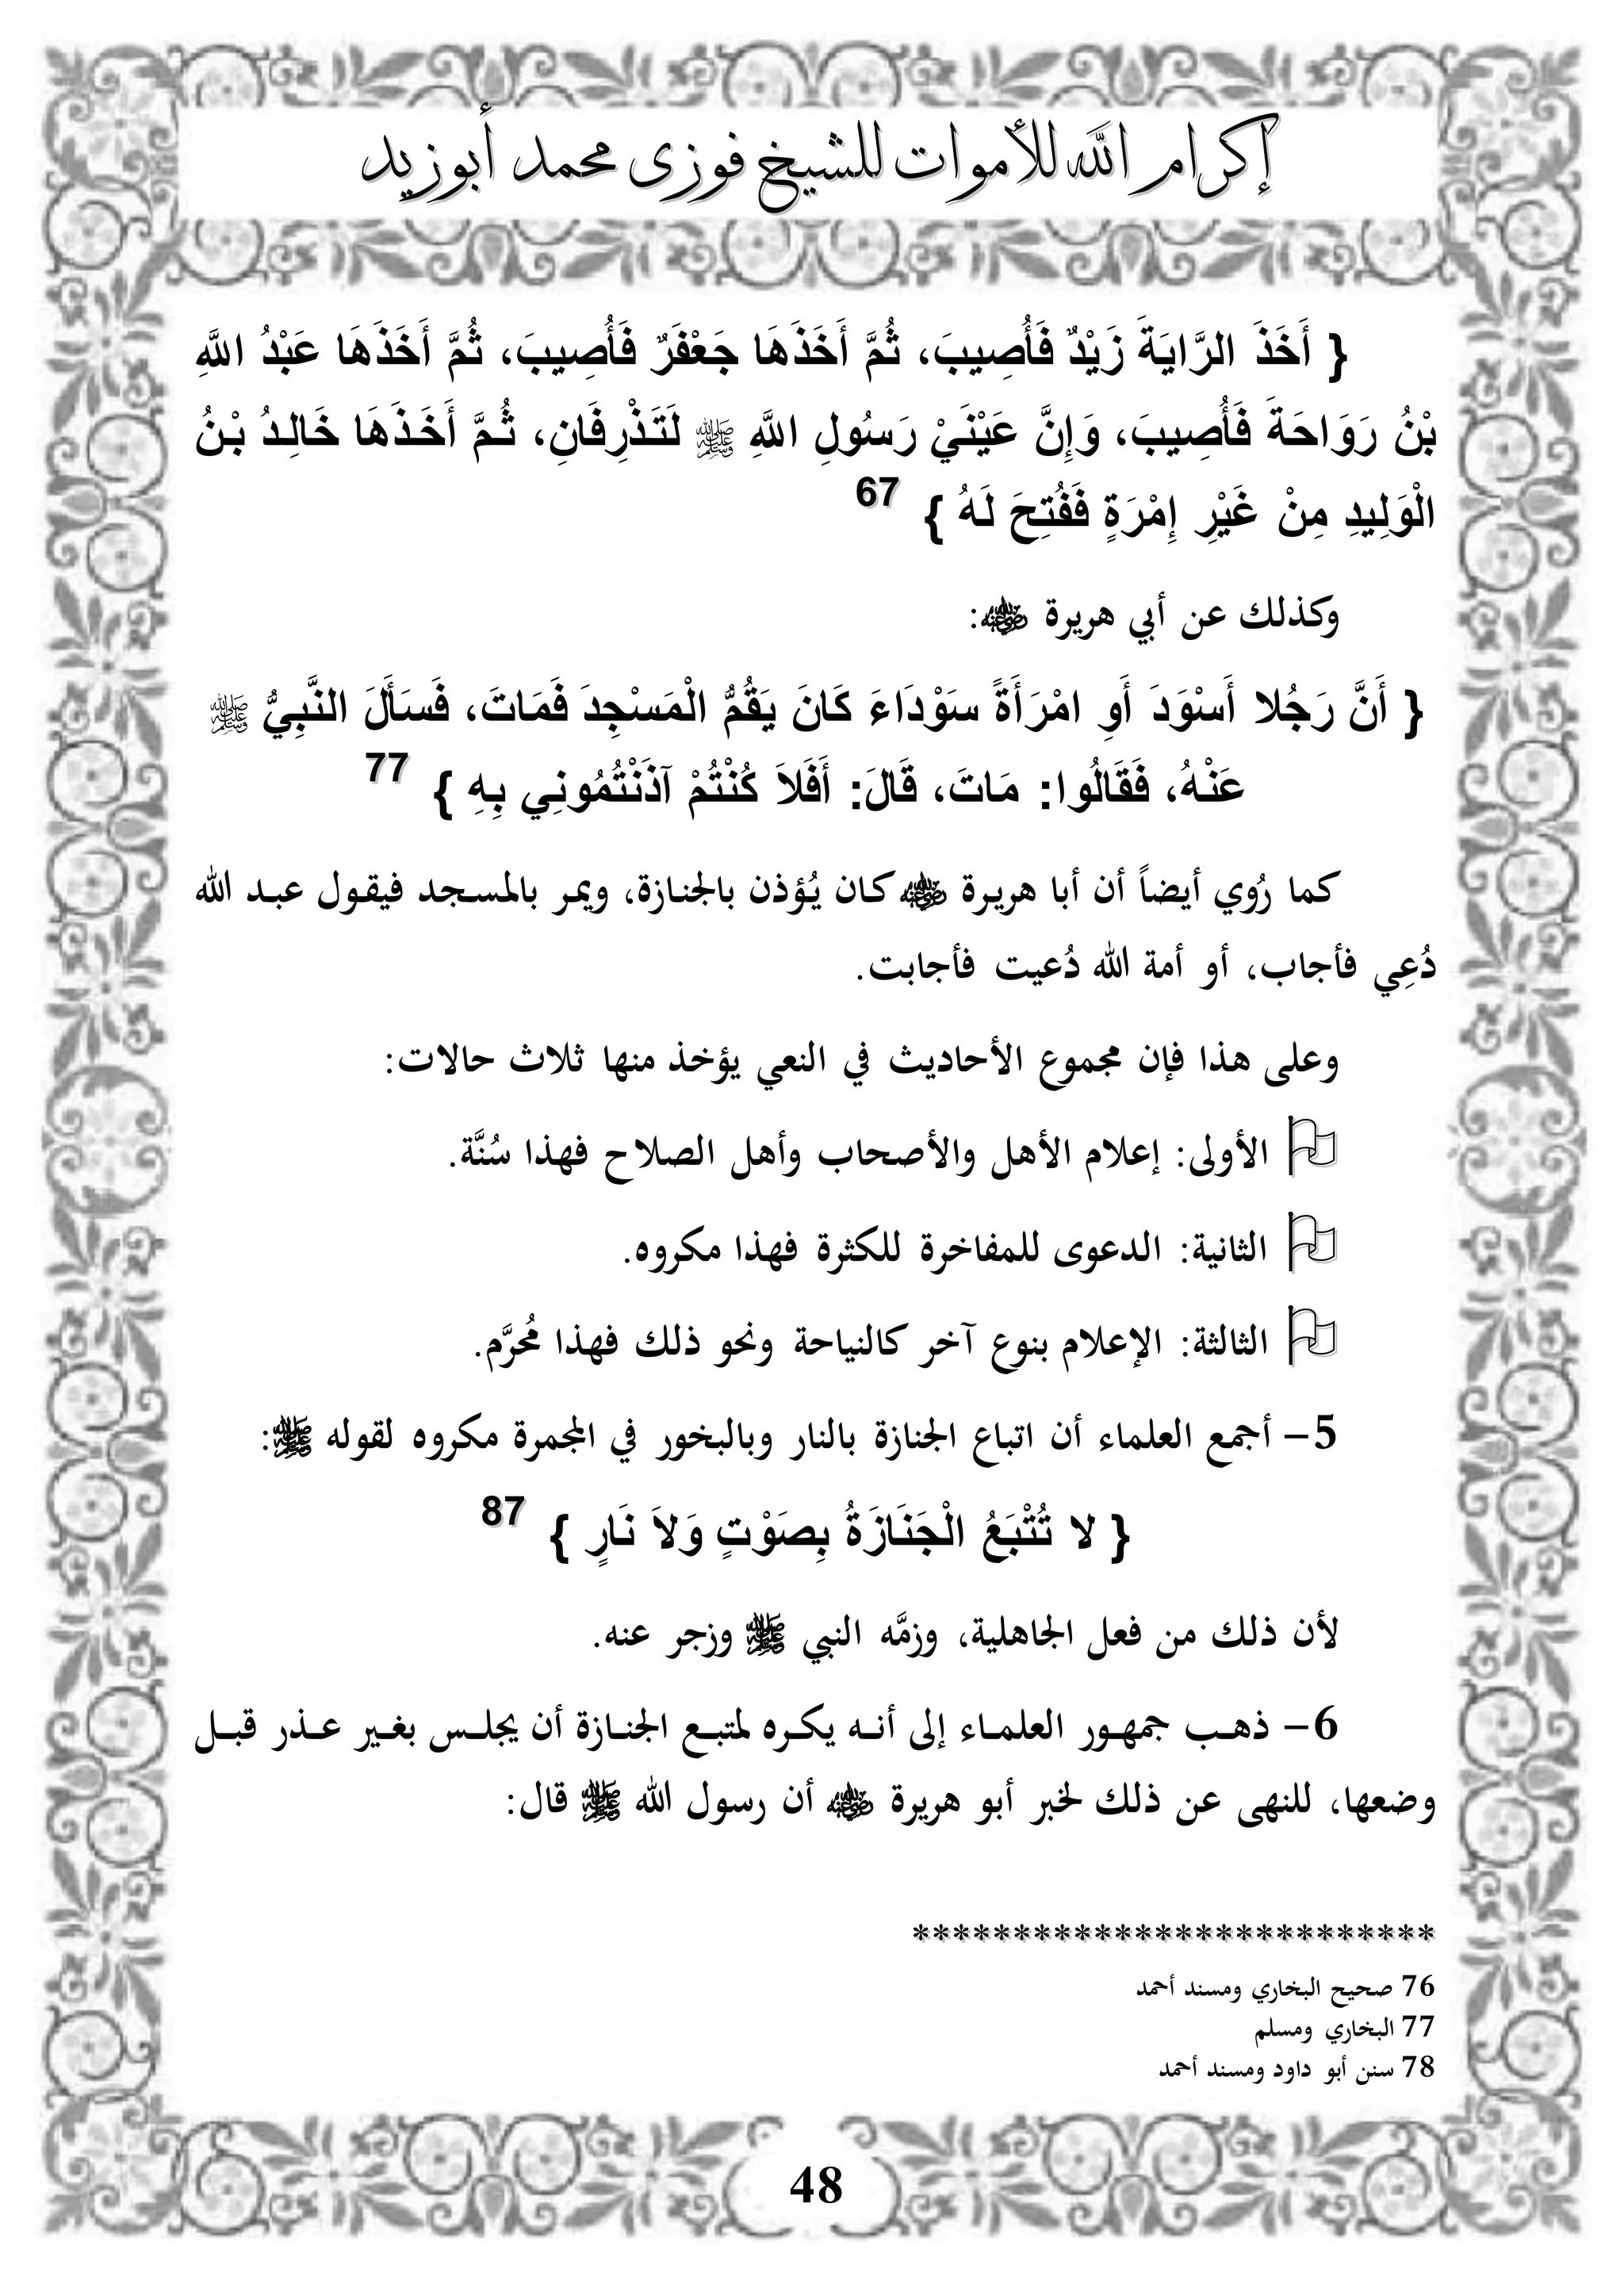 إكرام الله للأموات للشيخ فوزى محمد أبوزيد
{ أَخَذَ الرَّايَةَ زَيْدٌ فَأُصِيبَ، ثُمَّ أَخَذَهَا جَعْفَرٌ فَأُصِيبَ، ثُمَّ أَخَذَهَا عَبْدُ اللَّهِ
بْنُ رَوَاحَةَ فَأُصِيبَ، وَإِنَّ عَيْنَيْ رَسُولِ اللَّهِ ﷺ لَتَذْرِفَانِ، ثُمَّ أَخَذَهَا خَالِدُ بْنُ
الْوَلِيدِ مِنْ غَيْرِ إِمْرَةٍ فَفُتِحَ لَهُ } 67
وكذلك عن أبي هريرة ﷛:
{ أَنَّ رَجُلا أَسْوَدَ أَوِ امْرَأَةً سَوْدَاءَ كَانَ يَقُمُّ الْمَسْجِدَ فَمَاتَ، فَسَأَلَ النَّبِيُّ ﷺ
عَنْهُ، فَقَالُوا: مَاتَ، قَالَ: أَفَلاَ كُنْتُمْ آذَنْتُمُونِي بِهِ } 77
كما رُوي أيضاً أن أبا هريرة ﷛ كان يُؤذن بالجنازة، ويمر بالمسجد فيقول عبد الله
دُعِي فأجاب، أو أمة الله دُعيت فأجابت.
وعلى هذا فإن مجموع الأحاديث في النعي يؤخذ منها ثلاث حالات:
الأولى: إعلام الأهل والأصحاب وأهل الصلاح فهذا سُنَّة.
الثانية: الدعوى للمفاخرة للكثرة فهذا مكروه.
الثالثة: الإعلام بنوع آخر كالنياحة ونحو ذلك فهذا مُحَرَّم.
5- أجمع العلماء أن اتباع الجنازة بالنار وبالبخور في المجمرة مكروه لقوله ﷺ:
{ لا تُتْبَعُ الْجَنَازَةُ بِصَوْتٍ وَلاَ نَارٍ } 87
لأن ذلك من فعل الجاهلية، وزمَّه النبي ﷺ وزجر عنه.
6- ذهب جمهور العلماء إلى أنه يكره لمتبع الجنازة أن يجلس بغير عذر قبل
وضعها، للنهى عن ذلك لخبر أبو هريرة ﷛ أن رسول الله ﷺ قال:
**************************
76 صحيح البخاري ومسند أحمد
77 البخاري ومسلم
78 سنن أبو داود ومسند أحمد
48